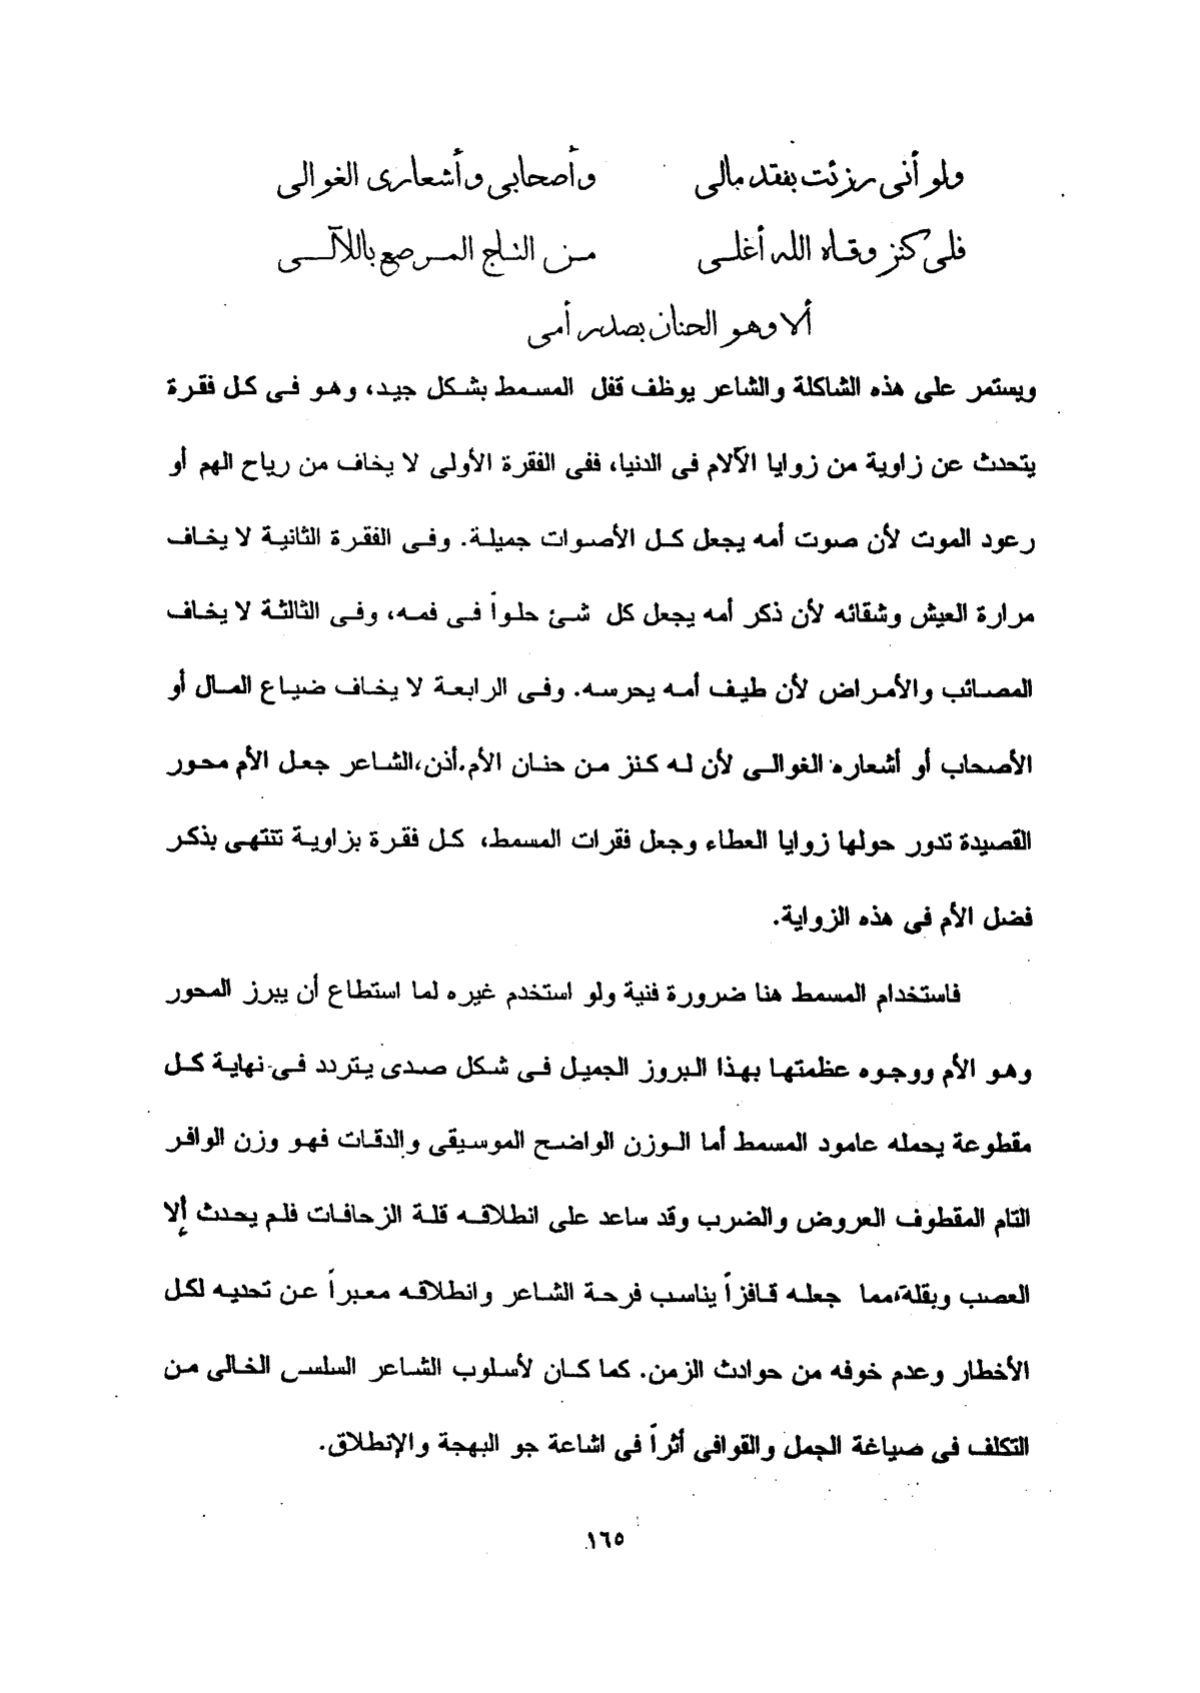 ولو أنى رزئت بفقد مالى وأصحابى وأشعارى الغوالى
فلى كنز وقاه الله أغلى من التاج المرصع باللآلى
ألا وهو الحنان بصدر أمى
ويستمر على هذه الشاكلة والشاعر يوظف قفل المسمط بشكل جيد، وهو فى كل فقرة
يتحدث عن زاوية من زوايا الآلام فى الدنيا، ففى الفقرة الأولى لا يخاف من رياح الهم أو
رعود الموت لأن صوت أمه يجعل كل الأصوات جميلة. وفى الفقرة الثانية لا يخاف
مرارة العيش وشقائه لأن ذكر أمه يجعل كل شئ حلواً فى فمه، وفى الثالثة لا يخاف
المصائب والأمراض لأن طيف أمه يحرسه. وفى الرابعة لا يخاف ضياع المال أو
الأصحاب أو أشعاره الغوالى لأن له كنز من حنان الأم.أذن،الشاعر جعل الأم محور
القصيدة تدور حولها زوايا العطاء وجعل فقرات المسمط، كل فقرة بزاوية تنتهى بذكر
فضل الأم فى هذه الزواية.
فاستخدام المسمط هنا ضرورة فنية ولو استخدم غيره لما استطاع أن يبرز المحور
وهو الأم ووجوه عظمتها بهذا البروز الجميل فى شكل صدى يتردد فى نهاية كل
مقطوعة يحمله عامود المسمط أما الوزن الواضح الموسيقى والدقات فهو وزن الوافر
التام المقطوف العروض والضرب وقد ساعد على انطلاقه قلة الزحافات فلم يحدث إلا
العصب وبقلة،مما جعله قافزاً يناسب فرحة الشاعر وانطلاقه معبراً عن تحديه لكل
الأخطار وعدم خوفه من حوادث الزمن. كما كان لأسلوب الشاعر السلس الخالى من
التكلف فى صياغة الجمل والقوافى أثراً فى اشاعة جو البهجة والإنطلاق.
١٦٥